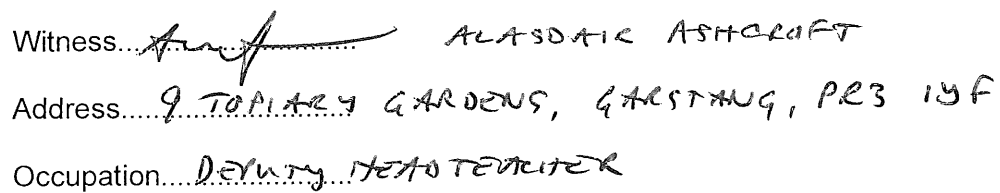 Witness.................................... ALASDAIR ASHCROFT
Address.....9 TOPIARY GARDENS, GARSTANG, PR3 1YF
Occupation....DEPUTY HEADTEACHER